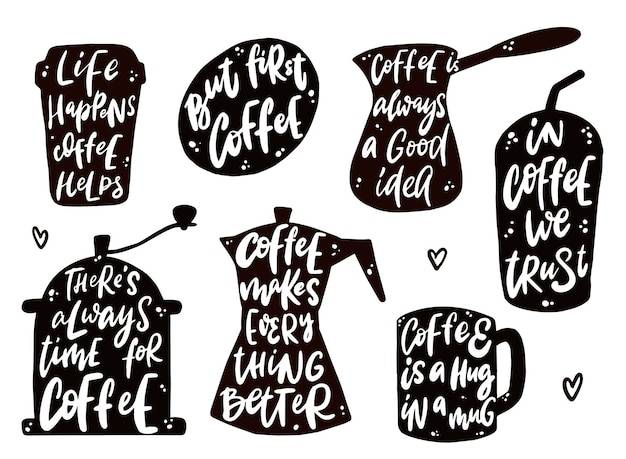 Life
Happens
coffee
Helps
But first
Coffee
Coffee is
always
a Good
idea
in
Coffee
we
trust
There's
always
time for
Coffee
Coffee
makes
every
thing
Better
Coffee
is a Hug
in a mug